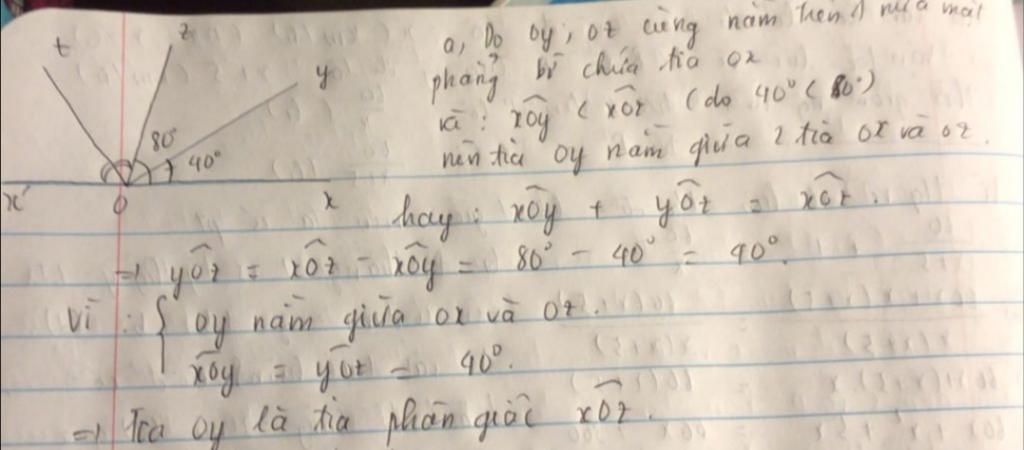 t
z
y
80°
40°
x'
O
x
a, Do Oy, Oz cùng nằm trên 1 nửa mặt
phẳng bờ chứa tia Ox
và: xOy < xOz (do 40° < 80°)
nên tia Oy nằm giữa 2 tia Ox và Oz.
hay: xOy + yOz = xOz.
=> yOz = xOz - xOy = 80° - 40° = 40°.
Vì: { Oy nằm giữa Ox và Oz.
xOy = yOz = 40°.
=> Tia Oy là tia phân giác xOz.